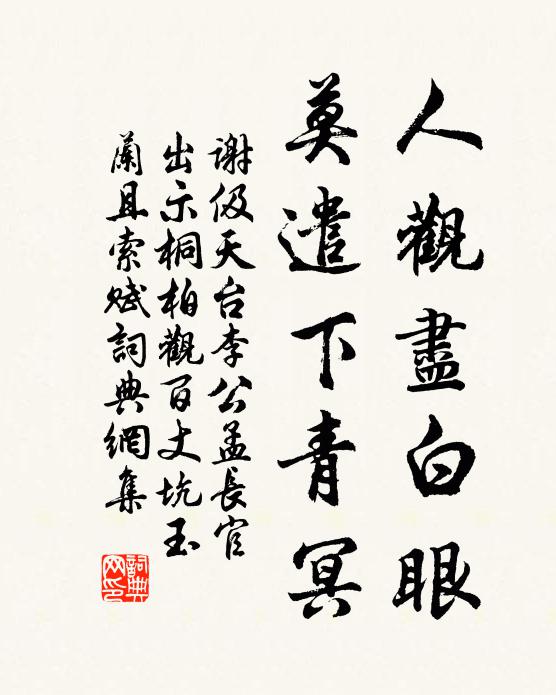 人觀盡白眼
莫遣下青冥
謝伋天台李公孟長官
出示桐柏觀百丈坑玉
蘭且索賦詞典網集
詞典网印